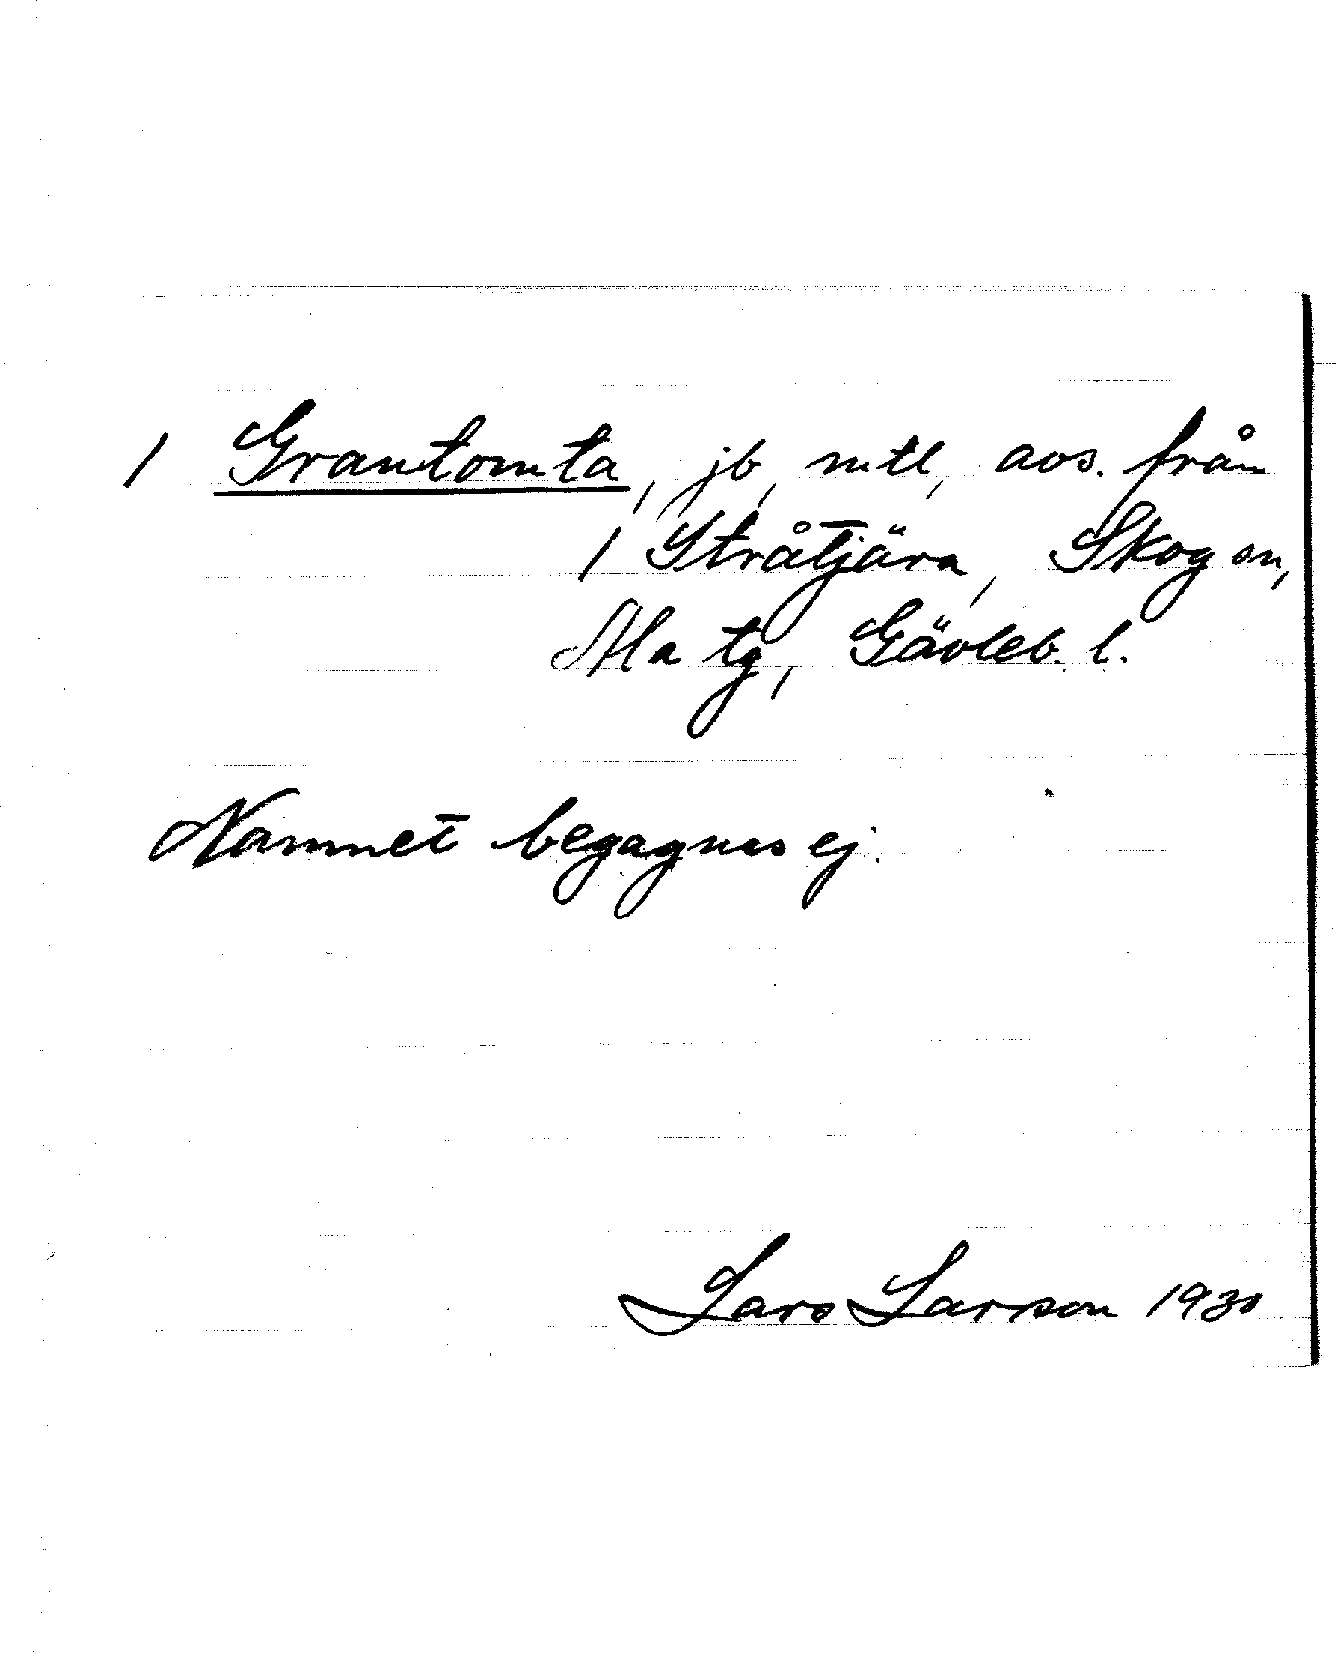 1 Grantomta, jb, mtl, avs. från
1 Stråtjära, Skog sn,
Ala tg, Gävleb. l.
Namnet begagnas ej.
Lars Larsson 1930